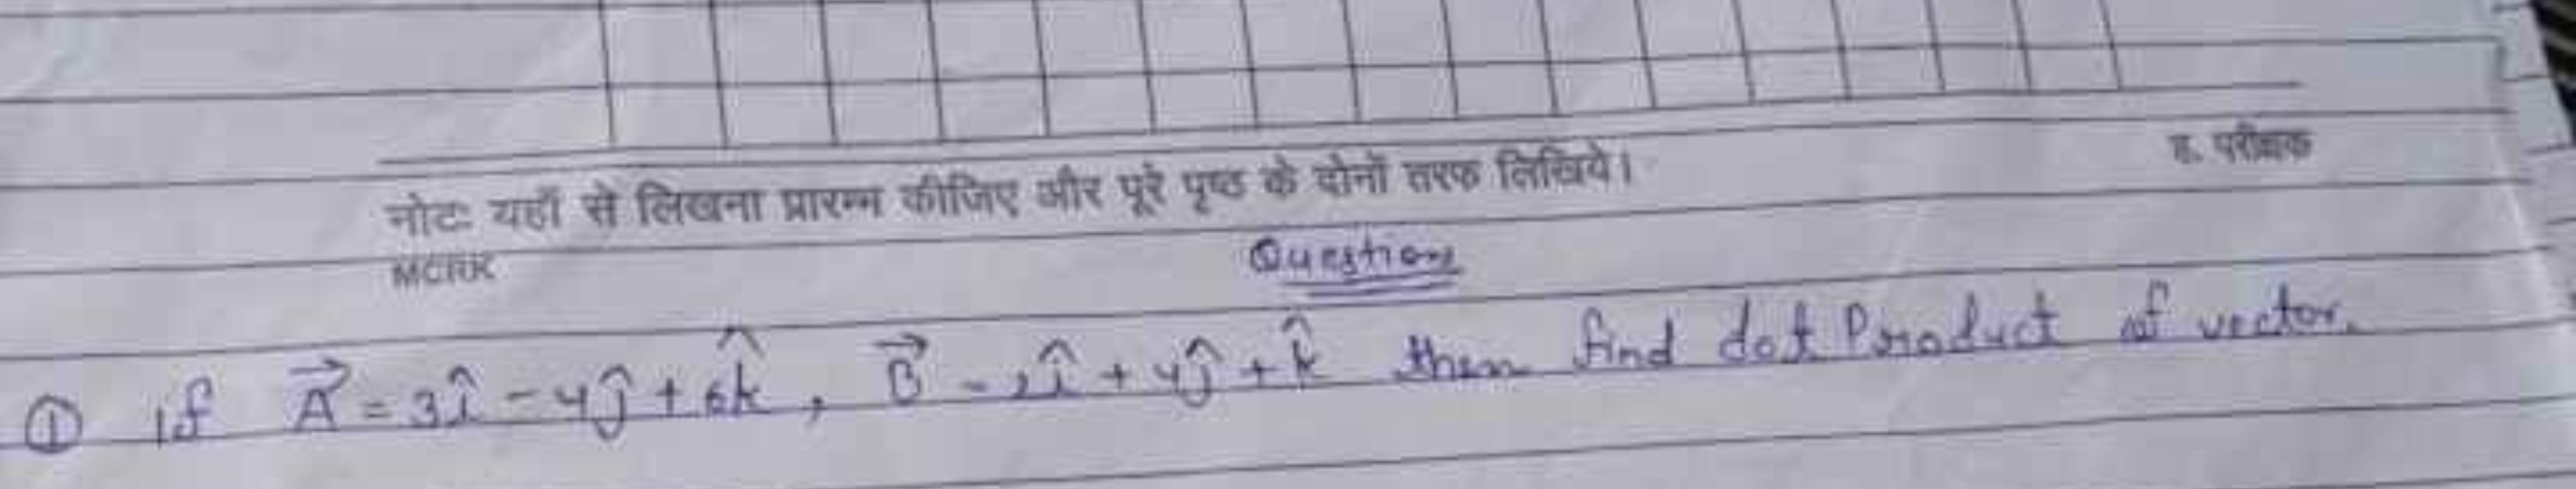 ह. परीक्षक
नोटः यहाँ से लिखना प्रारम्भ कीजिए और पूरे पृष्ठ के दोनों तरफ लिखिये।
MCRK
Question
① If A⃗ = 3î - 4ĵ + 6k̂, B⃗ = 2î + 4ĵ + k̂ then find dot Product of vector.